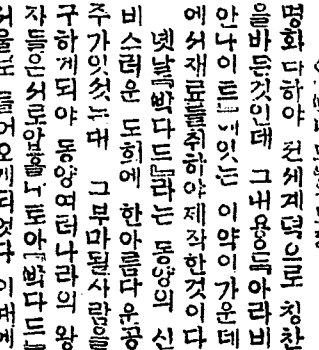 명화다하야 전세계뎍으로 칭찬
을바든것인데 그내용은아라비
안나이트」에잇는 이약이가운데
에서재료를취하야제작한것이다
녯날『빡다드』라는 동양의 신
비스러운 도회에 한아름다운공
주가잇섯는대 그부마될사람을
구하게되야 동양여러나라의 왕
자들은서로압흘 토아『빡다드』
서울로 들어오게되엿다 이때에